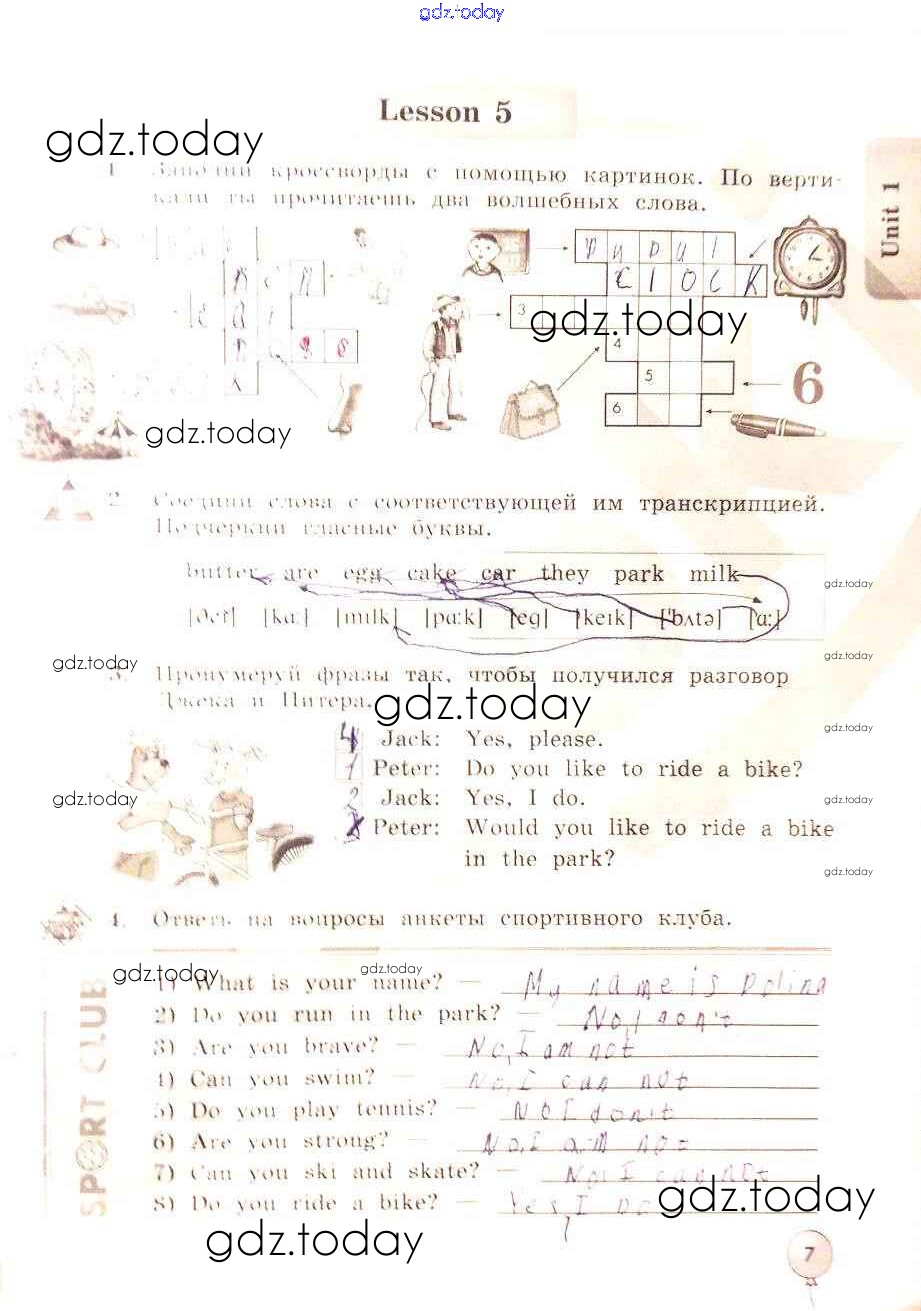 gdz.today
Lesson 5
gdz.today
Unit 1
1. Заполни кроссворды с помощью картинок. По верти-
кали ты прочитаешь два волшебных слова.
p u p u l
C l O C K
3
gdz.today
4
5
6
6
gdz.today
2. Соедини слова с соответствующей им транскрипцией.
Подчеркни гласные буквы.
butter are egg cake car they park milk
gdz.today
[ðeɪ] [kɑ:] [mɪlk] [pɑ:k] [eg] [keɪk] ['bʌtə] [ɑ:]
gdz.today
gdz.today
3. Пронумеруй фразы так, чтобы получился разговор
Джека и Питера.
gdz.today
gdz.today
4 Jack: Yes, please.
1 Peter: Do you like to ride a bike?
gdz.today
2 Jack: Yes, I do.
gdz.today
Peter: Would you like to ride a bike
in the park?
gdz.today
4. Ответь на вопросы анкеты спортивного клуба.
SPORT CLUB
gdz.today
gdz.today
1) What is your name? — My name is Polina
2) Do you run in the park? — No, I don't
3) Are you brave? — No, I am not
4) Can you swim? — No, I can not
5) Do you play tennis? — No I don't
6) Are you strong? — No, I am not
7) Can you ski and skate? — No, I can not
8) Do you ride a bike? — Yes, I Do
gdz.today
gdz.today
7